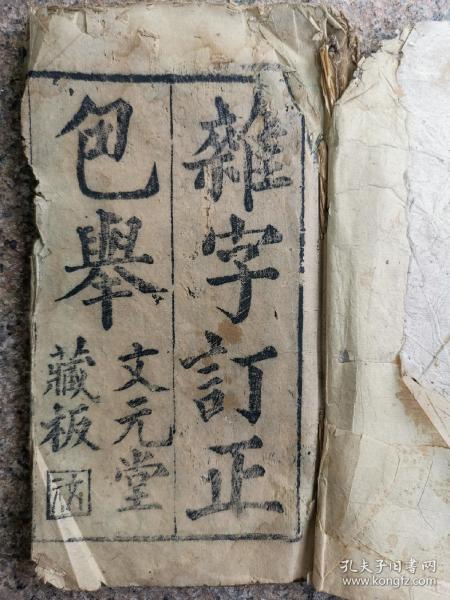 雜字訂正
包舉
文元堂
藏板
孔夫子旧书网
www.kongfz.com